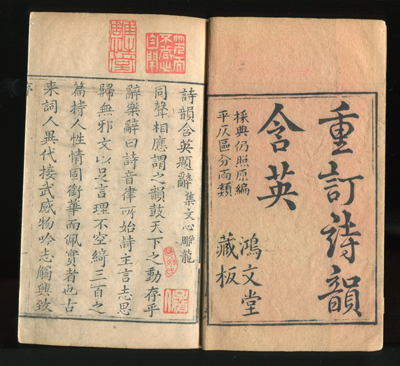 重訂詩韻
含英
採典仍照原編
平仄區分兩類
鴻文堂
藏板
詩韻含英題辭 集文心雕龍
同聲相應謂之韻鼓天下之動存乎
辭樂辭曰詩音律所始詩主言志思
歸無邪文以足言理不空綺三百之
篇持人性情固銜華而佩實者也古
來詞人異代接武感物吟志觸興致